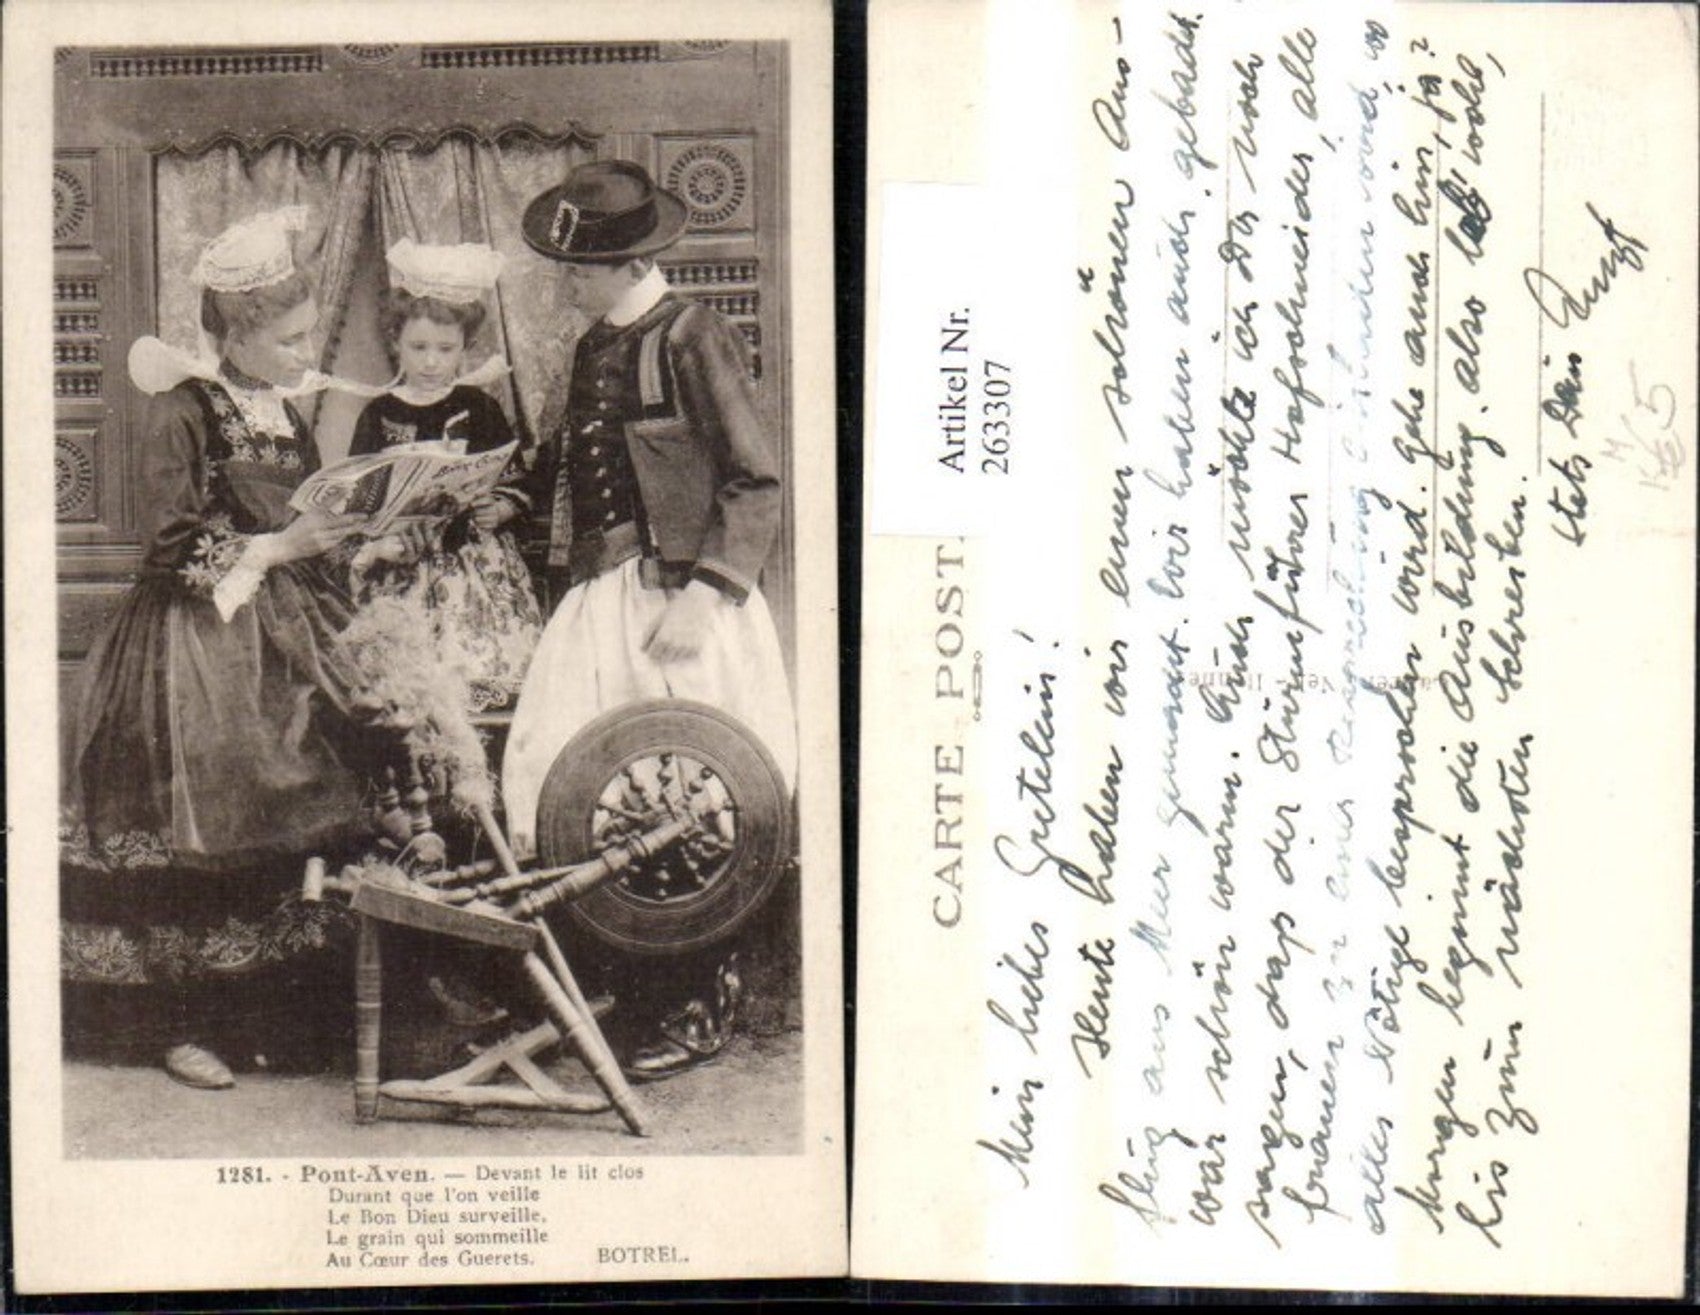 1281. - Pont-Aven. — Devant le lit clos
Durant que l'on veille
Le Bon Dieu surveille,
Le grain qui sommeille
Au Cœur des Guerets. BOTREL.
Artikel Nr.
263307
CARTE POST
Mein liebes Gretelein!
Heute haben wir einen schönen Aus-
flug ans Meer gemacht. Wir haben auch gebadet.
war schön warm. Auch möchte ich Dir noch
sagen, dass der Sturmführer Hofschneider, alle
frauen zu einer einladen wird, wo
alles Nötige besprochen wird. Gehe auch hin, ja?
Morgen beginnt die Ausbildung. also leb' wohl,
bis zum nächsten Schreiben.
Stets Dein